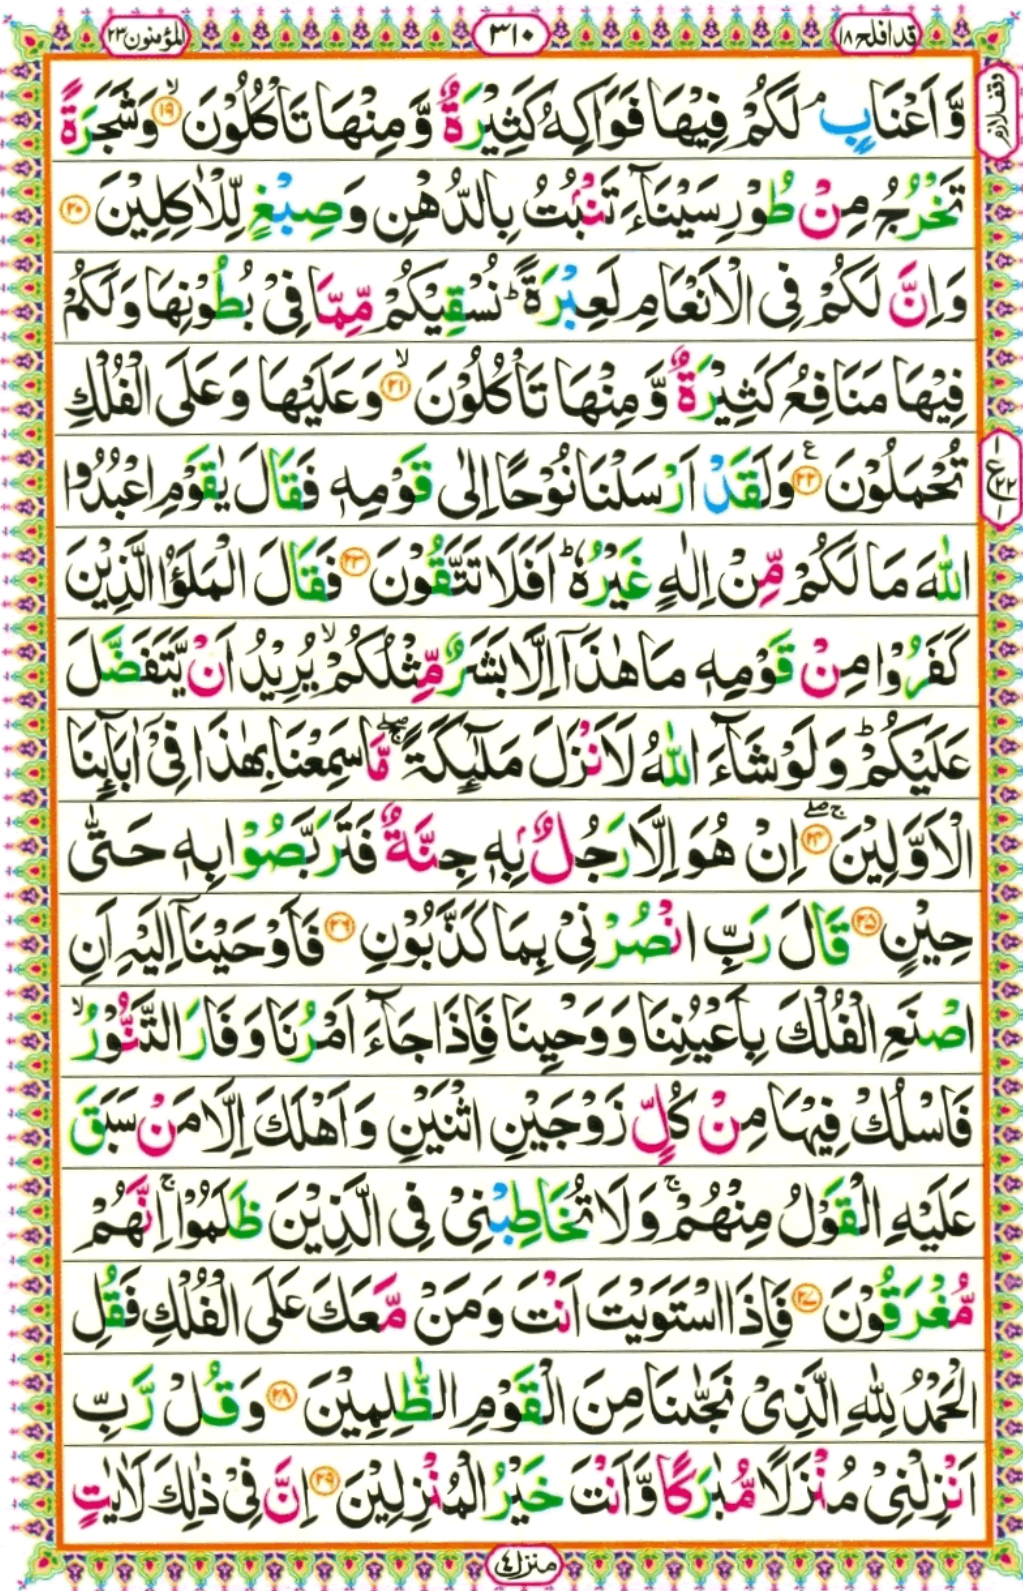 قد افلح ١٨
٣١٠
المؤمنون ٢٣
وقف لازم
وَّاَعْنَابٍۘ لَكُمْ فِيْهَا فَوَاكِهُ كَثِيْرَةٌ وَّمِنْهَا تَاْكُلُوْنَ ۙ﴿١٩﴾ وَشَجَرَةً
تَخْرُجُ مِنْ طُوْرِ سَيْنَآءَ تَنْۢبُتُ بِالدُّهْنِ وَصِبْغٍ لِّلْاٰكِلِيْنَ ﴿٢٠﴾
وَاِنَّ لَكُمْ فِى الْاَنْعَامِ لَعِبْرَةً ؕ نُسْقِيْكُمْ مِّمَّا فِيْ بُطُوْنِهَا وَلَكُمْ
فِيْهَا مَنَافِعُ كَثِيْرَةٌ وَّمِنْهَا تَاْكُلُوْنَ ۙ﴿٢١﴾ وَعَلَيْهَا وَعَلَى الْفُلْكِ
تُحْمَلُوْنَ ﴿٢٢﴾ وَلَقَدْ اَرْسَلْنَا نُوْحًا اِلٰى قَوْمِهٖ فَقَالَ يٰقَوْمِ اعْبُدُوا
اللّٰهَ مَا لَكُمْ مِّنْ اِلٰهٍ غَيْرُهٗ ؕ اَفَلَا تَتَّقُوْنَ ﴿٢٣﴾ فَقَالَ الْمَلَؤُا الَّذِيْنَ
كَفَرُوْا مِنْ قَوْمِهٖ مَا هٰذَآ اِلَّا بَشَرٌ مِّثْلُكُمْ ۙ يُرِيْدُ اَنْ يَّتَفَضَّلَ
عَلَيْكُمْ ؕ وَلَوْ شَآءَ اللّٰهُ لَاَنْزَلَ مَلٰٓئِكَةً ۖۚ مَّا سَمِعْنَا بِهٰذَا فِيْٓ اٰبَآئِنَا
الْاَوَّلِيْنَ ۖۚ﴿٢٤﴾ اِنْ هُوَ اِلَّا رَجُلٌۢ بِهٖ جِنَّةٌ فَتَرَبَّصُوْا بِهٖ حَتّٰى
حِيْنٍ ﴿٢٥﴾ قَالَ رَبِّ انْصُرْنِيْ بِمَا كَذَّبُوْنِ ﴿٢٦﴾ فَاَوْحَيْنَآ اِلَيْهِ اَنِ
اصْنَعِ الْفُلْكَ بِاَعْيُنِنَا وَوَحْيِنَا فَاِذَا جَآءَ اَمْرُنَا وَفَارَ التَّنُّوْرُ ۙ
فَاسْلُكْ فِيْهَا مِنْ كُلٍّ زَوْجَيْنِ اثْنَيْنِ وَاَهْلَكَ اِلَّا مَنْ سَبَقَ
عَلَيْهِ الْقَوْلُ مِنْهُمْ ۚ وَلَا تُخَاطِبْنِيْ فِى الَّذِيْنَ ظَلَمُوْا ۚ اِنَّهُمْ
مُّغْرَقُوْنَ ﴿٢٧﴾ فَاِذَا اسْتَوَيْتَ اَنْتَ وَمَنْ مَّعَكَ عَلَى الْفُلْكِ فَقُلِ
الْحَمْدُ لِلّٰهِ الَّذِيْ نَجّٰىنَا مِنَ الْقَوْمِ الظّٰلِمِيْنَ ﴿٢٨﴾ وَقُلْ رَّبِّ
اَنْزِلْنِيْ مُنْزَلًا مُّبٰرَكًا وَّاَنْتَ خَيْرُ الْمُنْزِلِيْنَ ﴿٢٩﴾ اِنَّ فِيْ ذٰلِكَ لَاٰيٰتٍ
١
ع
٢٢
منزل ٤